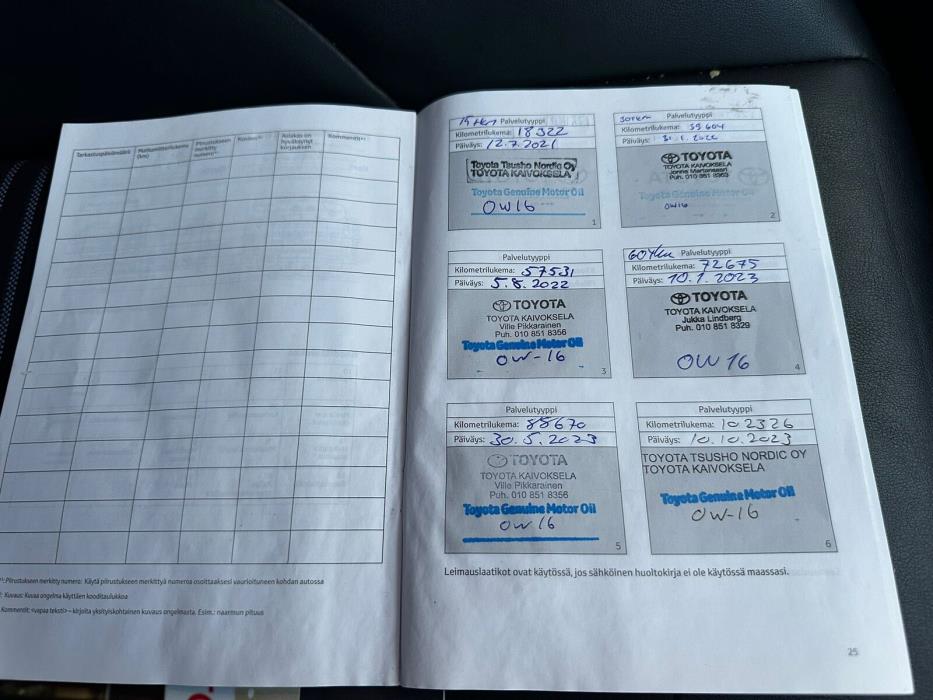 Tarkastuspäivämäärä
Mittarilukema (km)
Piirustukseen merkitty numero
Kuvaus
Asiakas on hyväksynyt korjauksen
Kommentit
Piirustukseen merkitty numero: Käytä piirustukseen merkittyä numeroa osoittaaksesi vaurioituneen kohdan autossa
Kuvaus: Kuvaa ongelma käyttäen kooditaulukkoa
Kommentit: <vapaa teksti> – kirjoita yksityiskohtainen kuvaus ongelmasta. Esim.: naarmun pituus
15 tkm Palvelutyyppi
Kilometrilukema: 18322
Päiväys: 12.7.2021
Toyota Tsusho Nordic Oy
TOYOTA KAIVOKSELA
Toyota Genuine Motor Oil
0W16
1
30tkm Palvelutyyppi
Kilometrilukema: 39604
Päiväys: 31.1.2022
TOYOTA
TOYOTA KAIVOKSELA
Puh. 010 851
Toyota Genuine Motor Oil
0W16
2
Palvelutyyppi
Kilometrilukema: 57531
Päiväys: 5.8.2022
TOYOTA
TOYOTA KAIVOKSELA
Ville Pikkarainen
Puh. 010 851 8356
Toyota Genuine Motor Oil
0W-16
3
60tkm Palvelutyyppi
Kilometrilukema: 72675
Päiväys: 10.1.2023
TOYOTA
TOYOTA KAIVOKSELA
Jukka Lindberg
Puh. 010 851 8329
0W16
4
Palvelutyyppi
Kilometrilukema: 88670
Päiväys: 30.5.2023
TOYOTA
TOYOTA KAIVOKSELA
Ville Pikkarainen
Puh. 010 851 8356
Toyota Genuine Motor Oil
0W16
5
Palvelutyyppi
Kilometrilukema: 102326
Päiväys: 10.10.2023
TOYOTA TSUSHO NORDIC OY
TOYOTA KAIVOKSELA
Toyota Genuine Motor Oil
0W-16
6
Leimauslaatikot ovat käytössä, jos sähköinen huoltokirja ei ole käytössä maassasi.
25